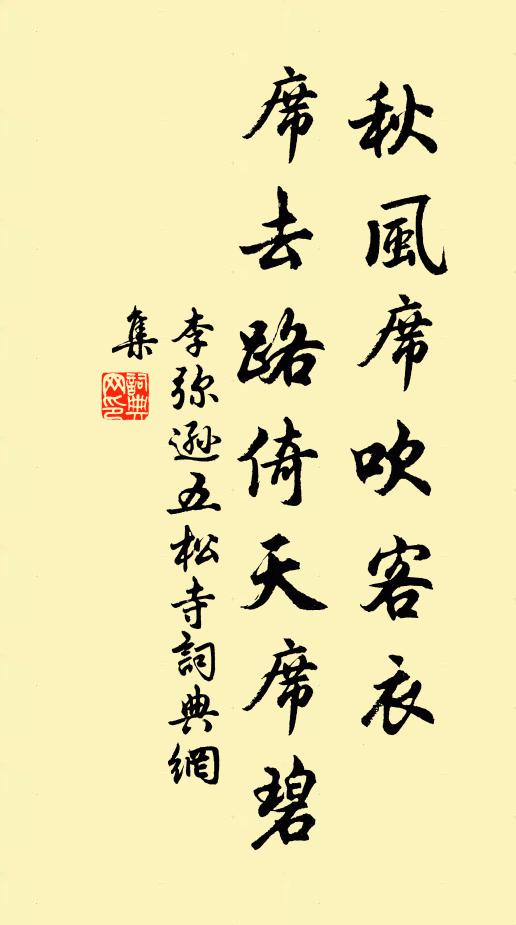 秋風席吹客衣
席去路倚天席碧
李弥遜五松寺詞典網
集
詞典网印